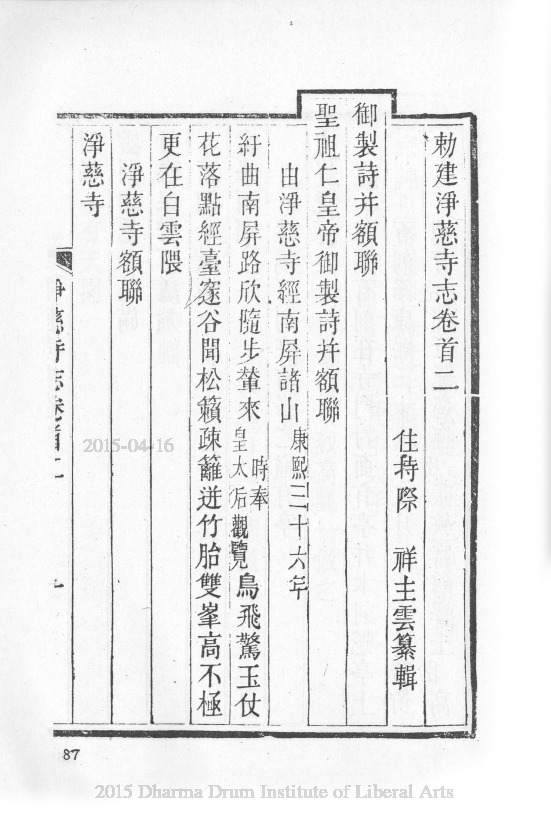 勅建淨慈寺志卷首二
住持際祥主雲纂輯
御製詩并額聯
聖祖仁皇帝御製詩并額聯
由淨慈寺經南屏諸山康熙三十六年
紆曲南屏路欣隨步輦來時奉皇太后觀覽鳥飛驚玉仗
花落點經臺邃谷聞松籟疎籬迸竹胎雙峯高不極
更在白雲隈
淨慈寺額聯
淨慈寺
淨慈寺志卷首二
2015-04-16
87
2015 Dharma Drum Institute of Liberal Arts